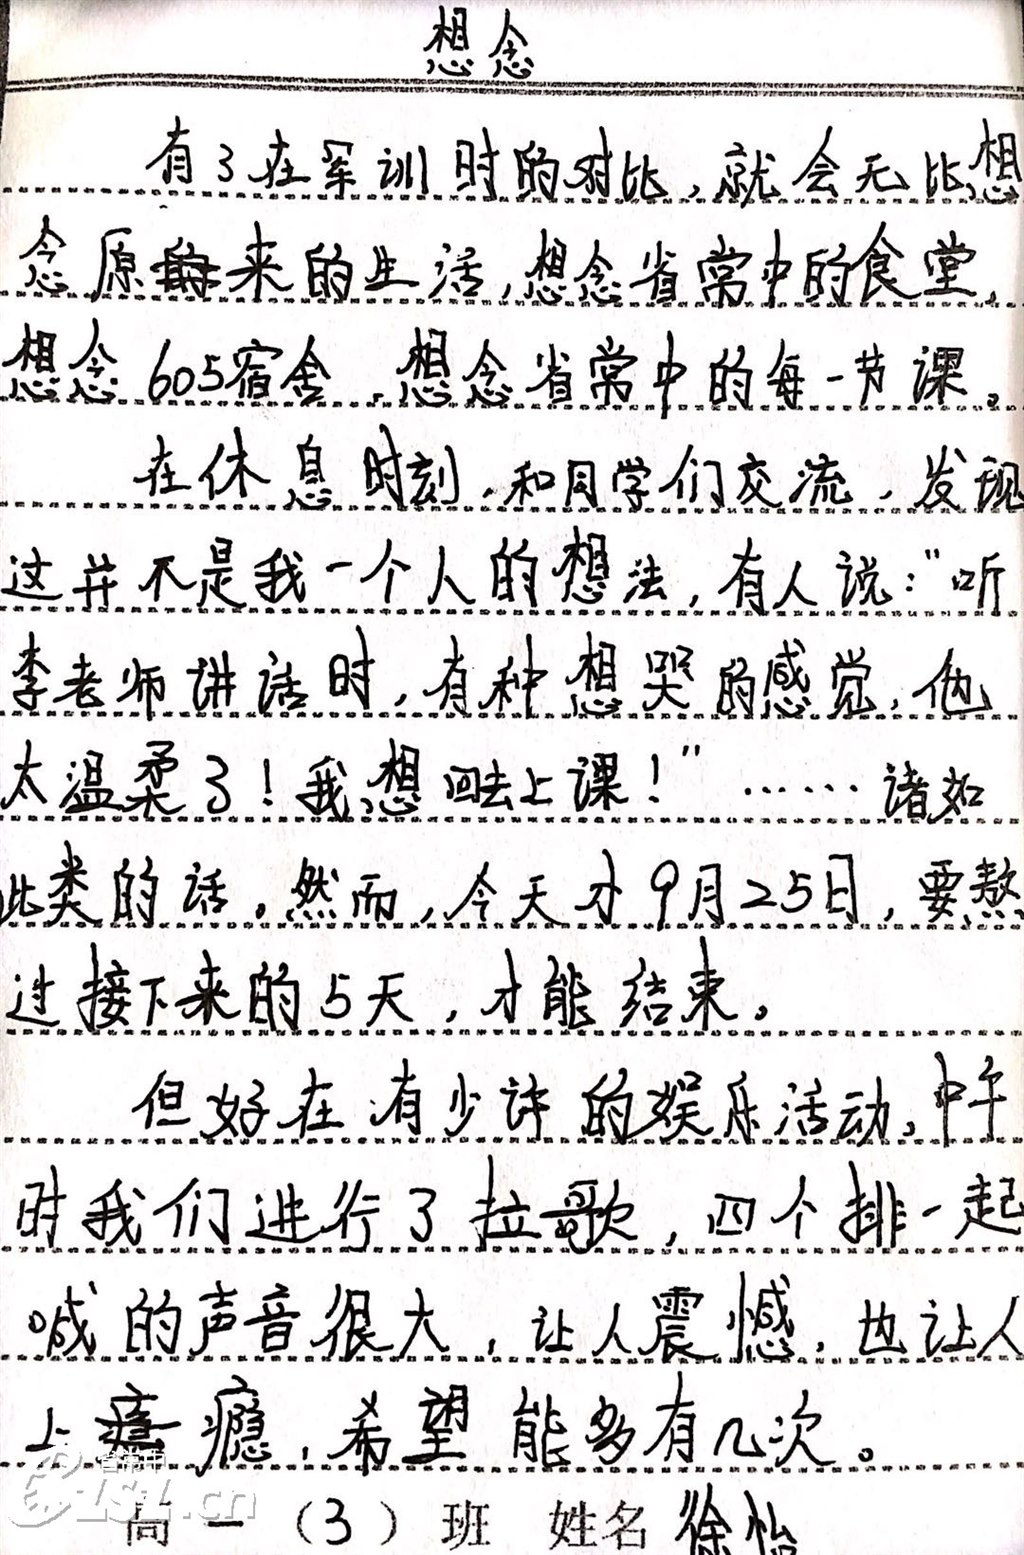 想念
有了在军训时的对比，就会无比想
念原来的生活，想念省常中的食堂，
想念605宿舍，想念省常中的每一节课。
在休息时刻，和同学们交流，发现
这并不是我一个人的想法，有人说：“听
李老师讲话时，有种想哭的感觉，他
太温柔了！我想回去上课！”……诸如
此类的话。然而，今天才9月25日，要熬
过接下来的5天，才能结束。
但好在有少许的娱乐活动，中午
时我们进行了拉歌，四个排一起
喊的声音很大，让人震憾，也让人
上瘾，希望能多有几次。
高一（3）班 姓名 徐怡
省常中
ZSZ.cn